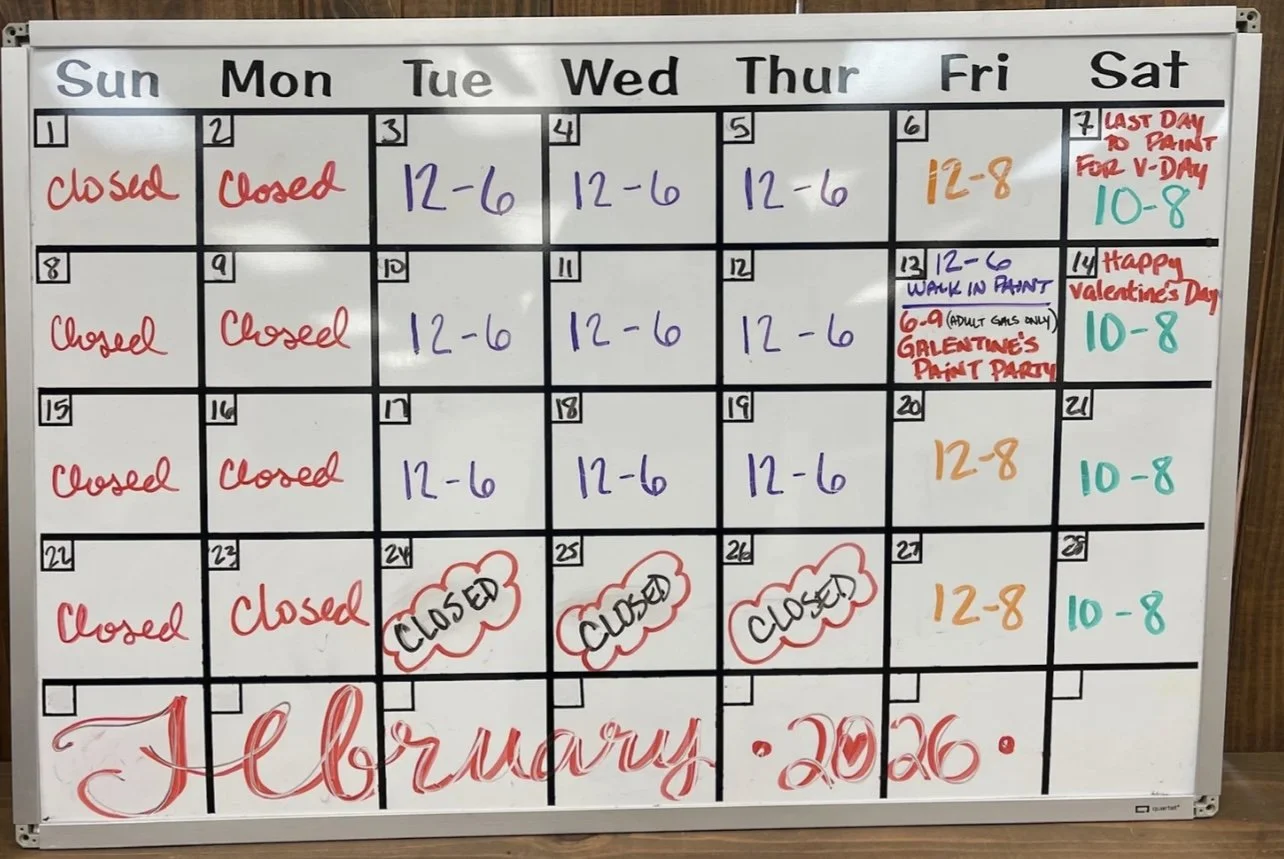 Sun Mon Tue Wed Thur Fri Sat
1 2 3 4 5 6 7 LAST DAY
TO PAINT
FOR V-DAY
closed Closed 12-6 12-6 12-6 12-8 10-8
8 9 10 11 12 13 12-6 14 Happy
WALK IN PAINT Valentine's Day
6-9 (ADULT GALS ONLY)
Closed Closed 12-6 12-6 12-6 GALENTINE'S 10-8
PAINT PARTY
15 16 17 18 19 20 21
Closed Closed 12-6 12-6 12-6 12-8 10-8
22 23 24 25 26 27 28
Closed Closed CLOSED CLOSED CLOSED 12-8 10-8
February • 2026 •
quartet